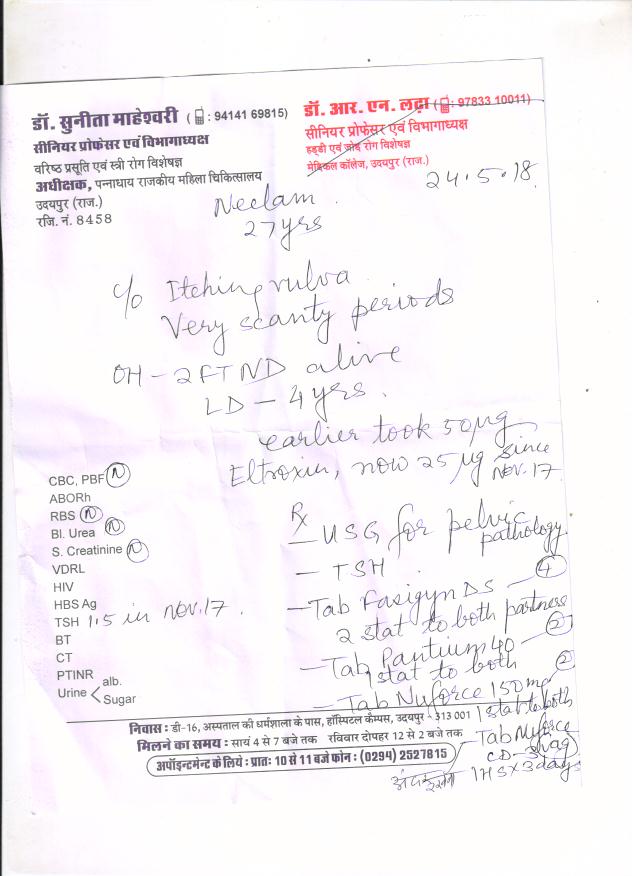 डॉ. सुनीता माहेश्वरी ( : 94141 69815)
सीनियर प्रोफेसर एवं विभागाध्यक्ष
वरिष्ठ प्रसूति एवं स्त्री रोग विशेषज्ञ
अधीक्षक, पन्नाधाय राजकीय महिला चिकित्सालय
उदयपुर (राज.)
रजि. नं. 8458
डॉ. आर. एन. लढ़ा ( : 97833 10011)
सीनियर प्रोफेसर एवं विभागाध्यक्ष
हड्डी एवं जोड़ रोग विशेषज्ञ
मेडिकल कॉलेज, उदयपुर (राज.)
24.5.18.
Neelam
27 yrs
c/o Itching vulva
Very scanty periods
OH - 2 FTND alive
LD - 4 yrs.
earlier took 50 µg
Eltroxin, now 25 µg since
NOV.17
CBC, PBF N
ABORh
RBS N
Bl. Urea N
S. Creatinine N
VDRL
HIV
HBS Ag
TSH 1.5 in NOV.17.
BT
CT
PTINR
Urine alb.
Sugar
Rx
- USG for pelvic
pathology
- TSH
- Tab Fasigyn DS - 4
2 stat to both partners
- Tab Pantium 40 - 2
1 stat to both
- Tab Nuforce 150 mg 2
1 stat to both
Tab Nuforce
CD - 3 vag
1 HS x 3 days
निवास : डी-16, अस्पताल की धर्मशाला के पास, हॉस्पिटल कैम्पस, उदयपुर - 313 001
मिलने का समय : सायं 4 से 7 बजे तक रविवार दोपहर 12 से 2 बजे तक
अपॉइन्टमेन्ट के लिये : प्रातः 10 से 11 बजे फोन : (0294) 2527815